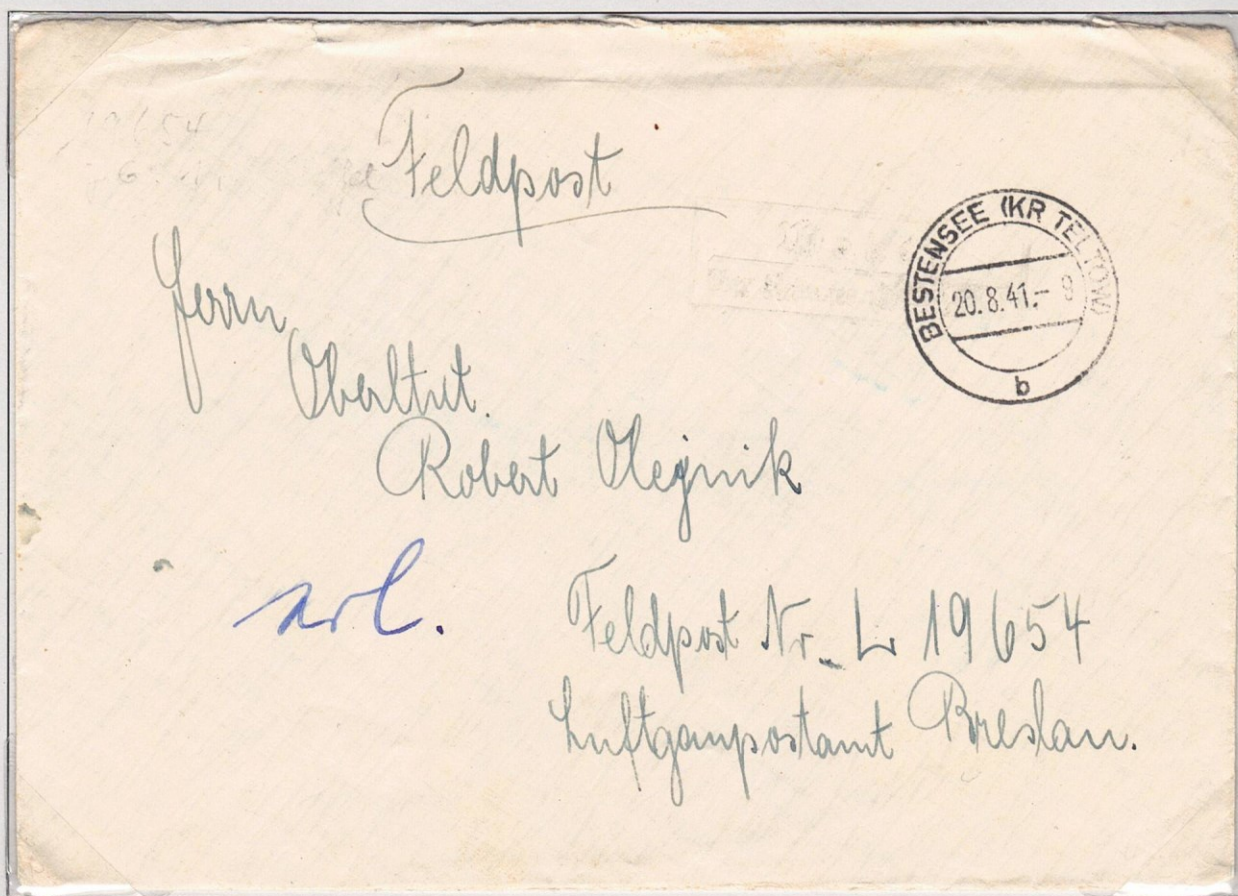 Feldpost
BESTENSEE (KR TELTOW)
20.8.41.- 9
b
Herrn
Oberltnt.
Robert Olejnik
erl.
Feldpost Nr. L 19654
Luftgaupostamt Breslau.